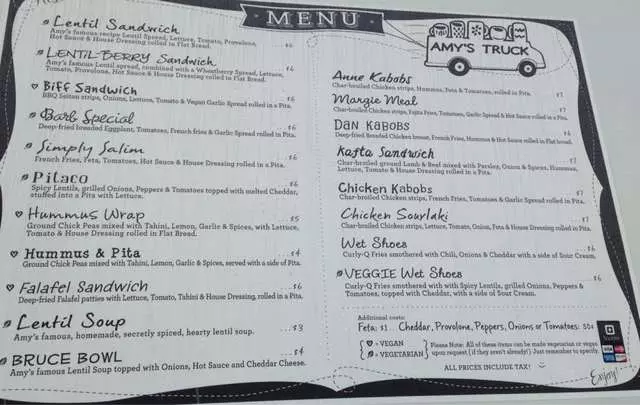 MENU
AMY'S TRUCK
Lentil Sandwich
Amy's famous recipe Lentil Spread, Lettuce, Tomato, Provolone,
Hot Sauce & House Dressing rolled in Flat Bread. $6
LENTIL-BERRY Sandwich
Amy's famous Lentil spread, combined with a Wheatberry Spread, Lettuce,
Tomato, Provolone, Hot Sauce & House Dressing rolled in Flat Bread. $6
Biff Sandwich
BBQ Seitan strips, Onions, Lettuce, Tomato & Vegan Garlic Spread rolled in a Pita. $6
Barb Special
Deep-fried breaded Eggplant, Tomatoes, French fries & Garlic Spread rolled in Pita. $6
Simply Salim
French Fries, Feta, Tomatoes, Hot Sauce & House Dressing rolled in a Pita. $6
Pitaco
Spicy Lentils, grilled Onions, Peppers & Tomatoes topped with melted Cheddar,
stuffed into a Pita with Lettuce. $6
Hummus Wrap
Ground Chick Peas mixed with Tahini, Lemon, Garlic & Spices, with Lettuce,
Tomato & House Dressing rolled in Flat Bread. $5
Hummus & Pita
Ground Chick Peas mixed with Tahini, Lemon, Garlic & Spices, served with a side of Pita. $4
Falafel Sandwich
Deep-fried Falafel patties with Lettuce, Tomato, Tahini & House Dressing, rolled in a Pita. $6
Lentil Soup
Amy's famous, homemade, secretly spiced, hearty lentil soup. $3
BRUCE BOWL
Amy's famous Lentil Soup topped with Onions, Hot Sauce and Cheddar Cheese. $4
Anne Kabobs
Char-broiled Chicken strips, Hummus, Feta & Tomatoes, rolled in Pita. $7
Margie Meal
Char-broiled Chicken strips, Fajita Fries, Tomatoes, Garlic Spread & Hot Sauce rolled in a Pita. $7
DAN KABOBS
Deep-fried Breaded Chicken breast, French Fries, Hummus & Hot Sauce rolled in Flat bread. $6
Kafta Sandwich
Char-broiled ground Lamb & Beef mixed with Parsley, Onion & Spices, Hummus,
Lettuce, Tomato & House Dressing rolled in a Pita. $7
Chicken Kabobs
Char-broiled Chicken strips, French Fries, Tomatoes & Garlic Spread rolled in a Pita. $7
Chicken Souvlaki
Char-broiled Chicken strips, Lettuce, Tomato, Onion, Feta & House Dressing rolled in a Pita. $7
Wet Shoes
Curly-Q Fries smothered with Chili, Onions & Cheddar with a side of Sour Cream. $6
VEGGIE Wet Shoes
Curly-Q Fries smothered with with Spicy Lentils, grilled Onions, Peppers &
Tomatoes, topped with Cheddar, with a side of Sour Cream. $6
Additional costs:
Feta: $1 Cheddar, Provolone, Peppers, Onions or Tomatoes: 50¢
= VEGAN
= VEGETARIAN
Please Note: All of these items can be made vegetarian or vegan
upon request (if they aren't already!) Just remember to specify.
ALL PRICES INCLUDE TAX!
VISA
Enjoy!